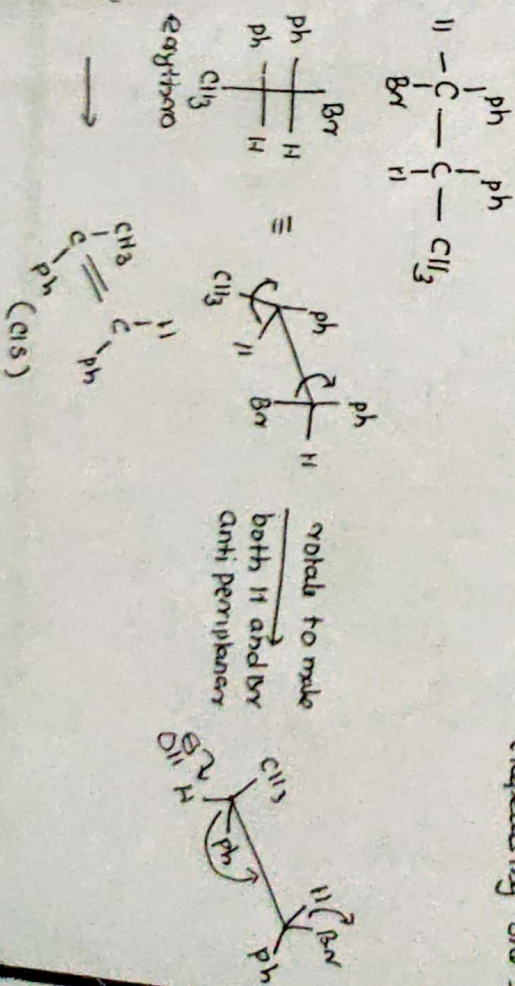 Ph Ph
H - C — C - CH3
Br H
Br
Ph H
Ph H
CH3
erythro
≡
Ph Ph
CH3 H Br H
rotate to make
both H and Br
anti periplanar
CH3 H Br
⊖
OH H Ph Ph
→
CH3 H
C = C
Ph Ph
(cis)